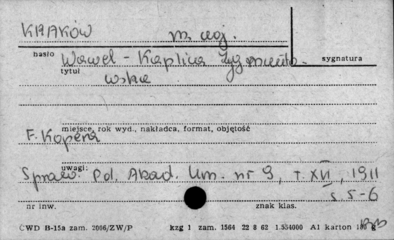 KRAKÓW m. woj.
hasło Wawel - Kaplica Zygmunto- sygnatura
tytuł wska
miejsce, rok wyd., nakładca, format, objętość
F. Kopera
uwagi:
Spraw. Pol. Akad. Um. nr 9, T. XVI, 1911
s. 5-6
nr inw. znak klas.
CWD B-15a zam. 2006/ZW/P kzg 1 zam. 1564 22 8 62 1.554000 A1 karton